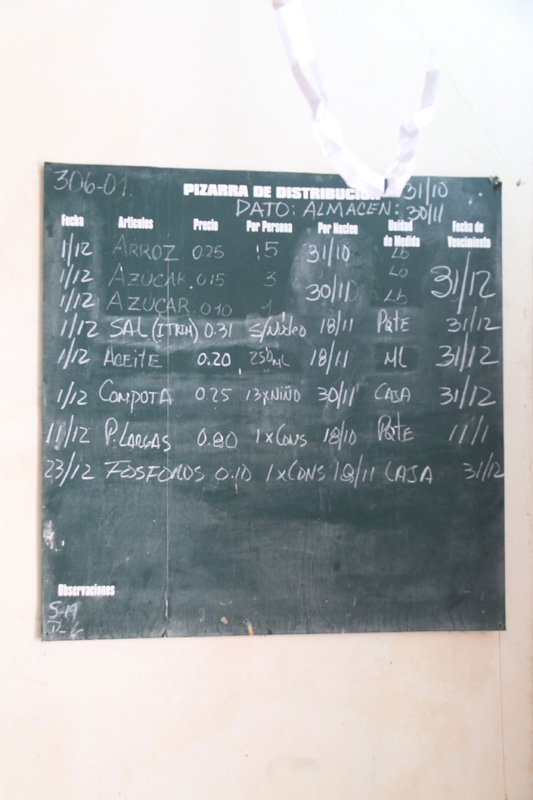 306-01 PIZARRA DE DISTRIBUCION 31/10
DATO: ALMACEN: 30/11
Fecha Articulos Precio Por Persona Por Nucleo Unidad de Medida Fecha de Vencimiento
1/12 ARROZ 0.25 5 31/10 Lb
1/12 AZUCAR 0.15 3 Lb 31/12
1/12 AZUCAR 0.10 30/11 Lb
1/12 SAL (1TRIM) 0.31 S/Núcleo 18/11 PQTE 31/12
1/12 ACEITE 0.20 250 ML 18/11 ML 31/12
1/12 COMPOTA 0.25 13xNIÑO 30/11 CAJA 31/12
11/12 P. LARGAS 0.80 1xCONS 18/10 PQTE 11/1
23/12 FOSFOROS 0.10 1xCONS 18/11 CAJA 31/12
Observaciones
S-19
D-6